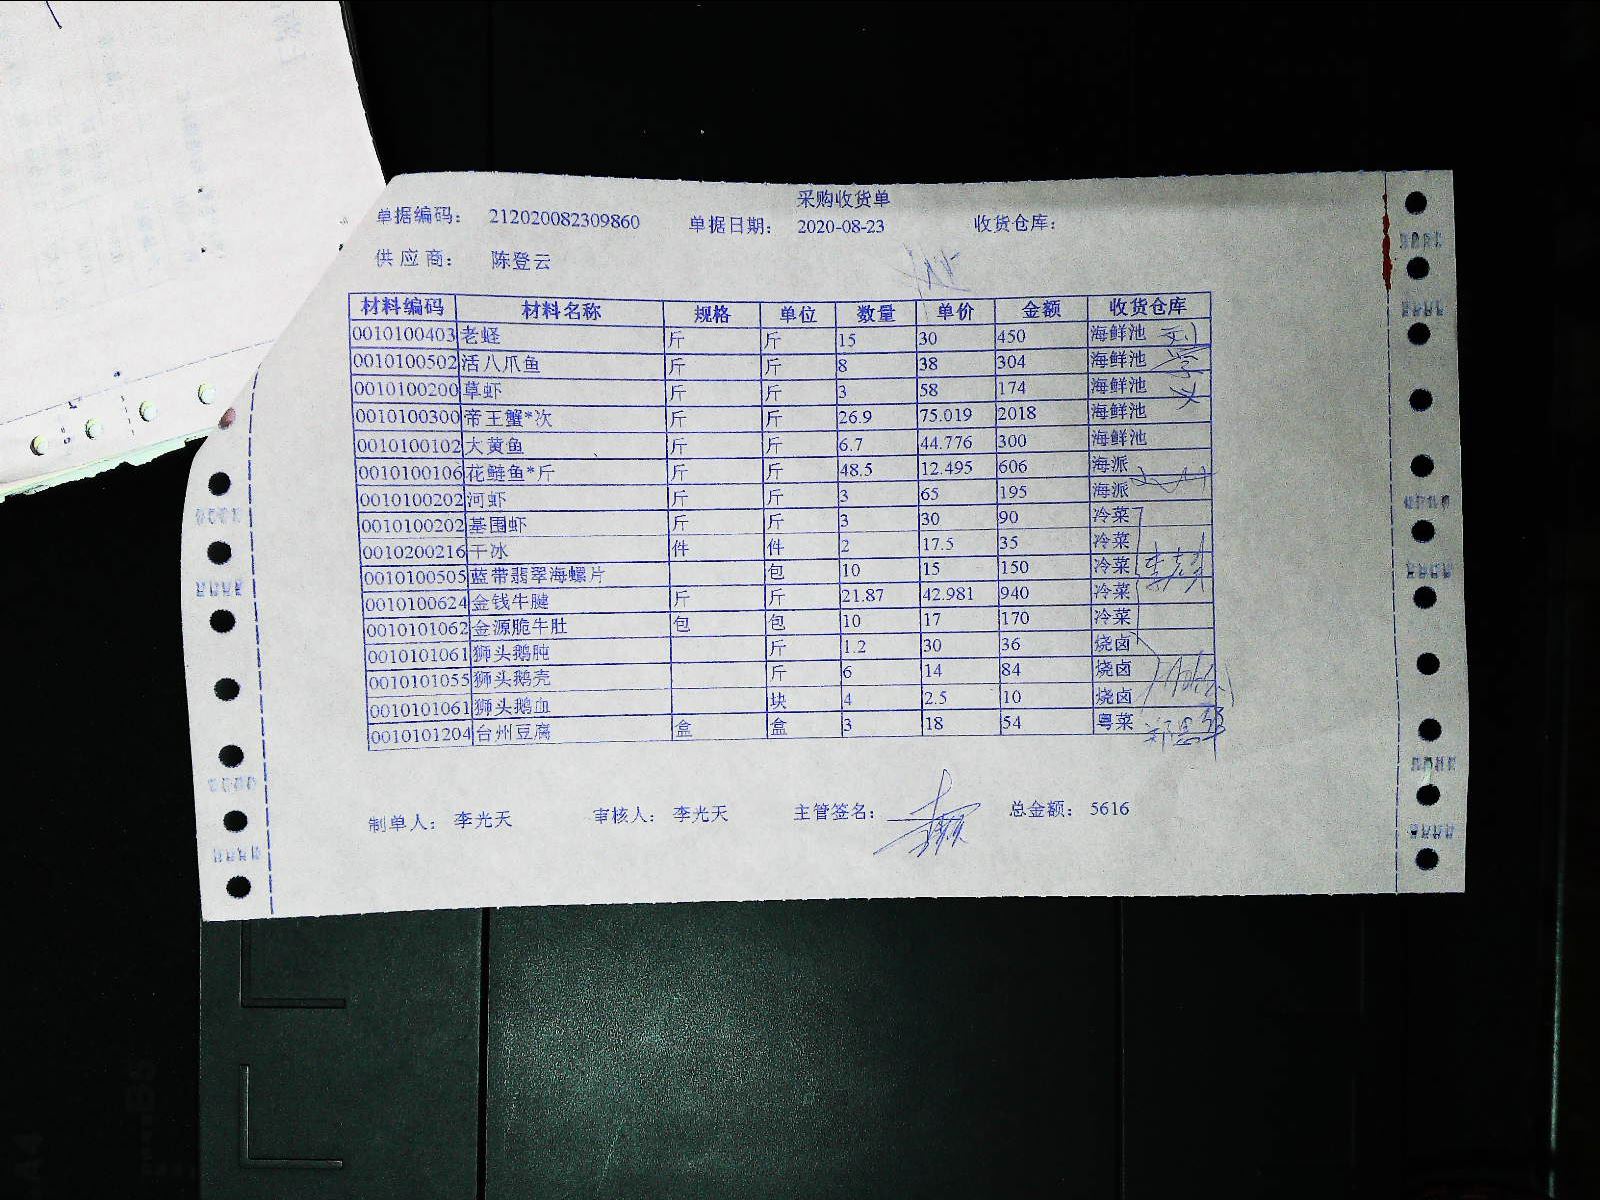 采购收货单
单据编码： 212020082309860 单据日期： 2020-08-23 收货仓库：
供应商： 陈登云
材料编码 材料名称 规格 单位 数量 单价 金额 收货仓库
0010100403 老蛏 斤 斤 15 30 450 海鲜池
0010100502 活八爪鱼 斤 斤 8 38 304 海鲜池
0010100200 草虾 斤 斤 3 58 174 海鲜池
0010100300 帝王蟹*次 斤 斤 26.9 75.019 2018 海鲜池
0010100102 大黄鱼 斤 斤 6.7 44.776 300 海鲜池
0010100106 花鲢鱼*斤 斤 斤 48.5 12.495 606 海派
0010100202 河虾 斤 斤 3 65 195 海派
0010100202 基围虾 斤 斤 3 30 90 冷菜
0010200216 干冰 件 件 2 17.5 35 冷菜
0010100505 蓝带翡翠海螺片 包 10 15 150 冷菜
0010100624 金钱牛腱 斤 斤 21.87 42.981 940 冷菜
0010101062 金源脆牛肚 包 包 10 17 170 冷菜
0010101061 狮头鹅肫 斤 1.2 30 36 烧卤
0010101055 狮头鹅壳 斤 6 14 84 烧卤
0010101061 狮头鹅血 块 4 2.5 10 烧卤
0010101204 台州豆腐 盒 盒 3 18 54 粤菜
制单人： 李光天 审核人： 李光天 主管签名： 总金额： 5616
B5
A4